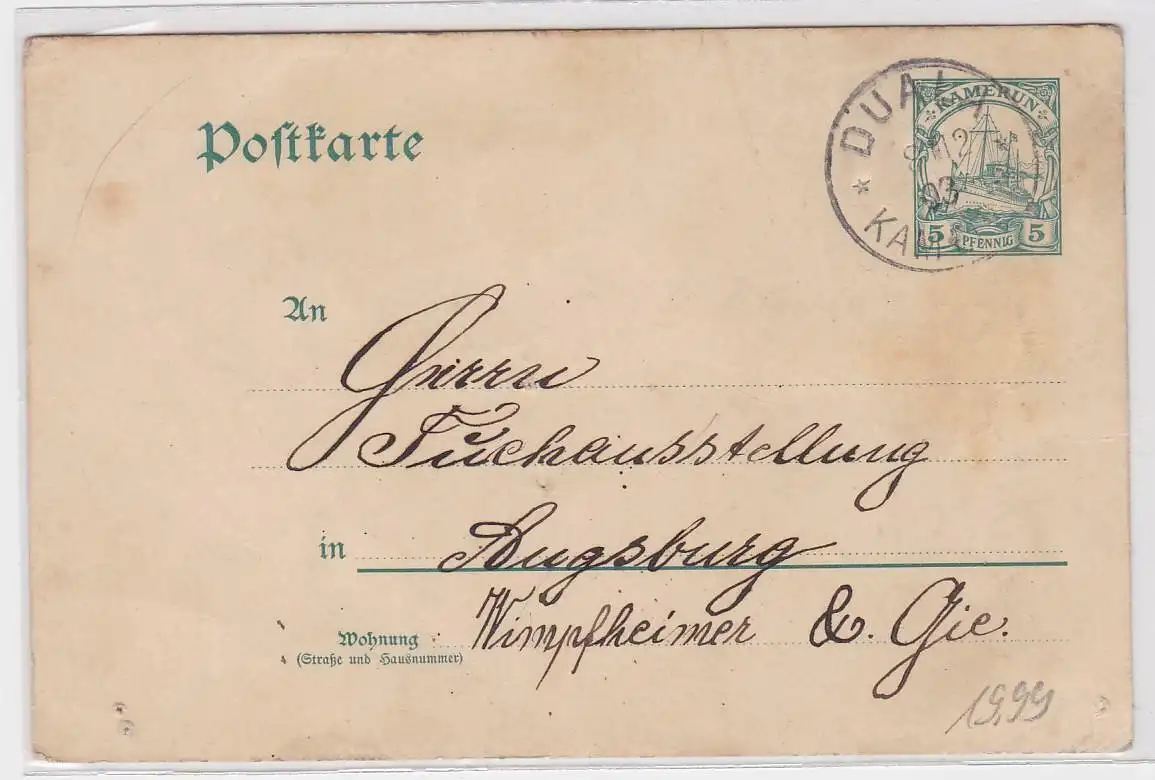 Postkarte
DUALA
KAMERUN
12
03
KAM
5 PFENNIG 5
An
Herrn
Tuchausstellung
in Augsburg
Wohnung Wimpfheimer &. Cie.
(Straße und Hausnummer)
19,99